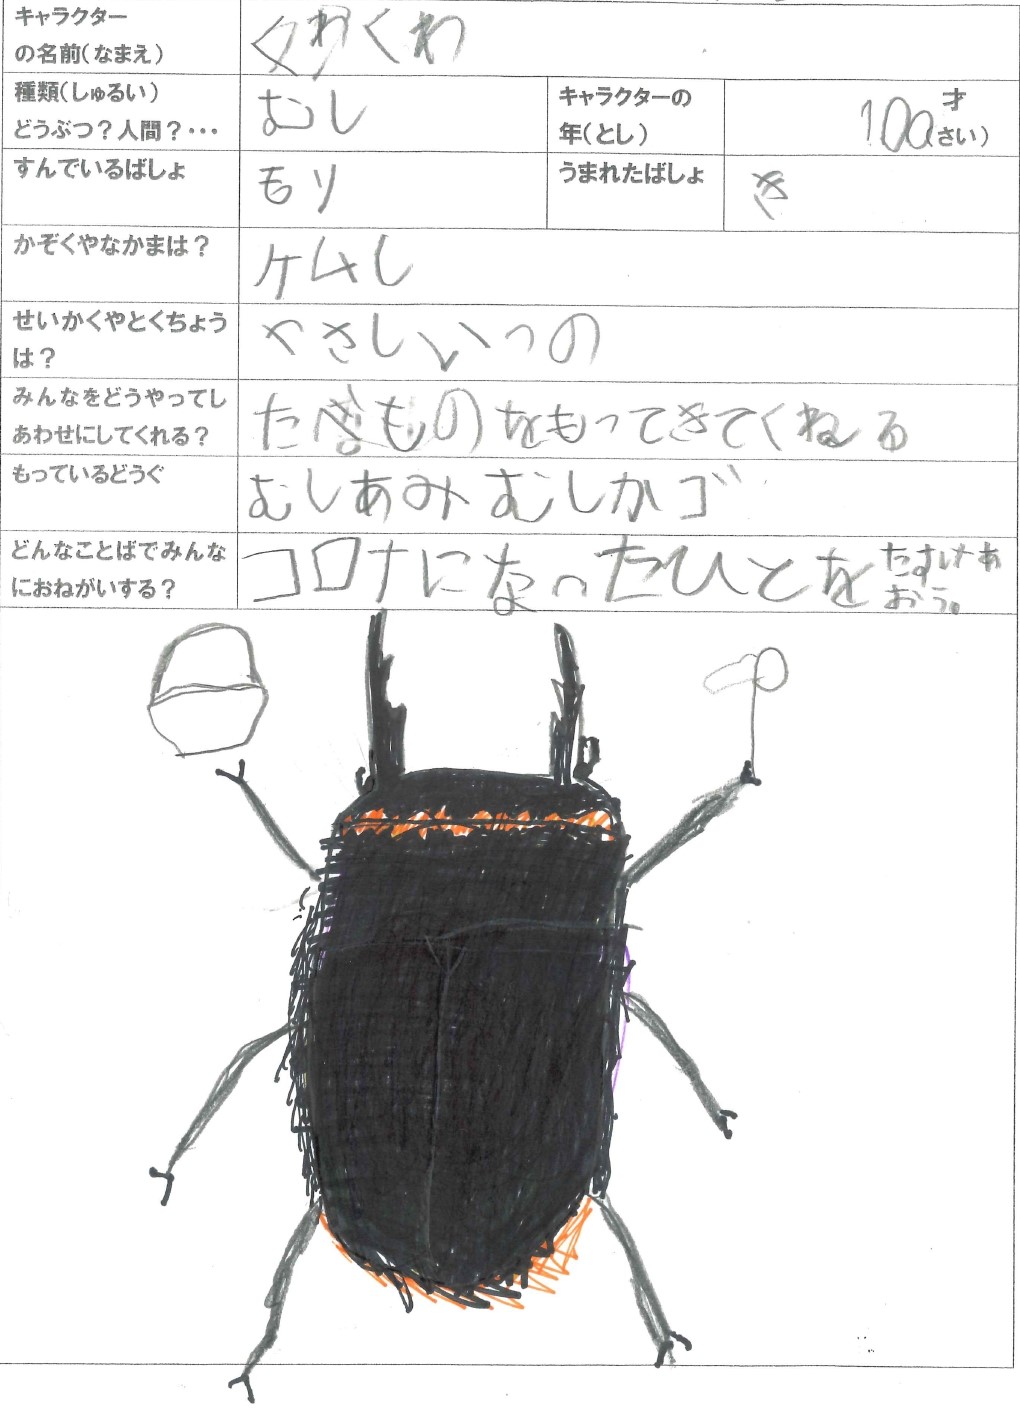 キャラクター
の名前(なまえ)
くわくわ
種類(しゅるい)
どうぶつ?人間?・・・
むし
キャラクターの
年(とし)
100
才
(さい)
すんでいるばしょ
もり
うまれたばしょ
き
かぞくやなかまは?
ケムし
せいかくやとくちょう
は?
やさしい つの
みんなをどうやってし
あわせにしてくれる?
たべものをもってきてくねる
もっているどうぐ
むしあみ むしかゴ
どんなことばでみんな
におねがいする?
コロナになったひとを
たすけあ
おう。